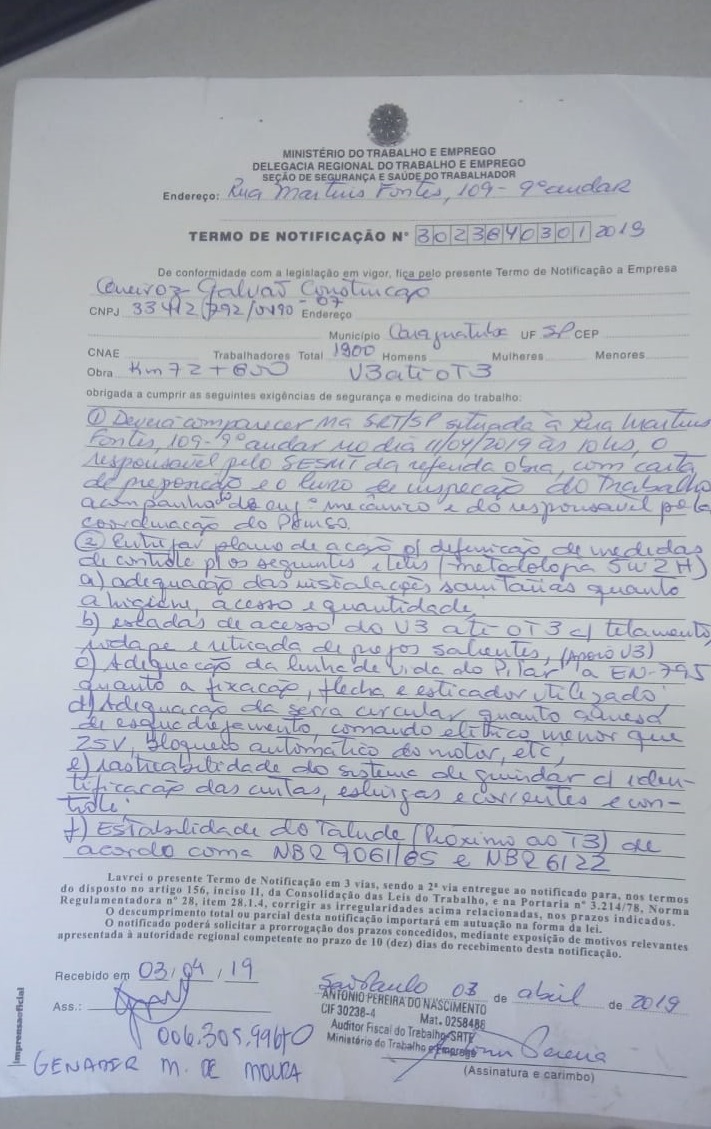 MINISTÉRIO DO TRABALHO E EMPREGO
DELEGACIA REGIONAL DO TRABALHO E EMPREGO
SEÇÃO DE SEGURANÇA E SAÚDE DO TRABALHADOR
Endereço: Rua Martins Fontes, 109 - 9º andar
TERMO DE NOTIFICAÇÃO N° 3023840301/2019
De conformidade com a legislação em vigor, fica pelo presente Termo de Notificação a Empresa
Galvão Construção
CNPJ 33412792/0190-07 Endereço
Município UF SP CEP
CNAE Trabalhadores Total 1900 Homens Mulheres Menores
Obra Km 72 + 650 V3 até OT3
obrigada a cumprir as seguintes exigências de segurança e medicina do trabalho:
① Deverá comparecer na SRT/SP situada à Rua Martins
Fontes, 109-9º andar no dia 11/04/2019 às 10hs, o
responsável pelo SESMT da referida obra, com carta
de preposição e o livro de inspeção do Trabalho
acompanhado de engº mecânico e do responsável pela
coordenação do
② Entregar plano de ação p/ definição de medidas
de controle p/ os seguintes itens (metodologia 5W2H)
a) adequação das instalações sanitárias quanto
a higiene, acesso e quantidade
b) escadas de acesso do V3 até OT3 c/ telamento,
rodapé e retirada de pregos salientes, (Apoio V3)
c) Adequação da linha de vida do Pilar 'a EN-795
quanto a fixação, flecha e esticador utilizado
d) Adequação da serra circular quanto
de comando elétrico menor que
25V, bloqueio automático do motor, etc,
e) rastreabilidade do sistema de guindar c/ iden-
tificação das cintas, eslingas e correntes e con-
trole.
f) Estabilidade do Talude (Próximo ao T3) de
acordo com a NBR 9061/85 e NBR 6122
Lavrei o presente Termo de Notificação em 3 vias, sendo a 2ª via entregue ao notificado para, nos termos
do disposto no artigo 156, inciso II, da Consolidação das Leis do Trabalho, e na Portaria nº 3.214/78, Norma
Regulamentadora nº 28, item 28.1.4, corrigir as irregularidades acima relacionadas, nos prazos indicados.
O descumprimento total ou parcial desta notificação importará em autuação na forma da lei.
O notificado poderá solicitar a prorrogação dos prazos concedidos, mediante exposição de motivos relevantes
apresentada à autoridade regional competente no prazo de 10 (dez) dias do recebimento desta notificação.
Recebido em 03/04/19
São Paulo 03 de abril de 2019
Ass.:
ANTONIO PEREIRA DO NASCIMENTO
CIF 30238-4 Mat. 0258488
Auditor Fiscal do Trabalho/SRTE
Ministério do Trabalho e Emprego
(Assinatura e carimbo)
GENADER M. DE MOURA
imprensaoficial